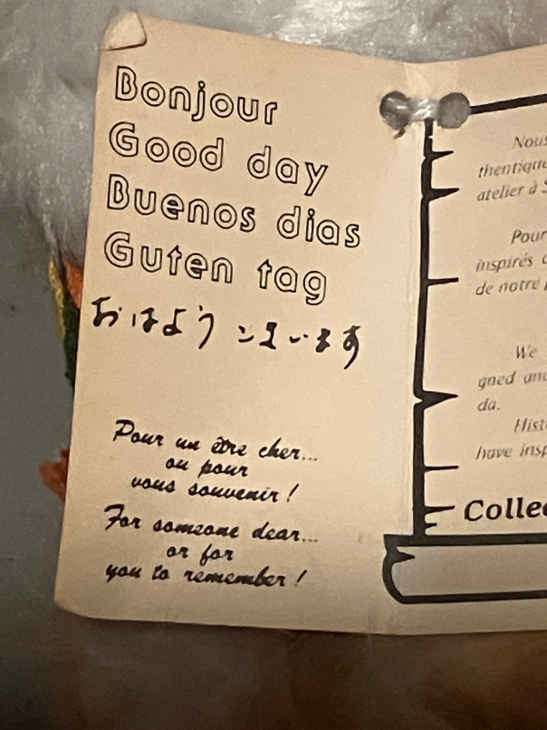 Bonjour
Good day
Buenos dias
Guten tag
おはようございます
Pour un être cher...
ou pour
vous souvenir !
For someone dear...
or for
you to remember !
Nous
thentique
atelier à S
Pour
inspirés d
de notre
We
gned and
da.
Hist
have insp
Collec